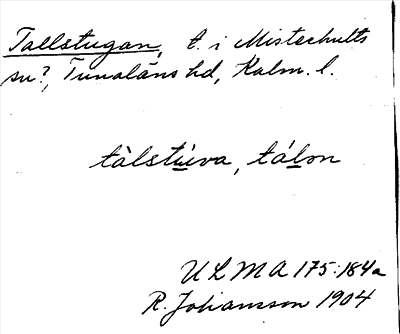 Tallstugan, t. i Misterhults
sn?, Tunaläns hd, Kalm. l.
tàlstu̲va, tálon
ULMA 175:184a
R. Johansson 1904